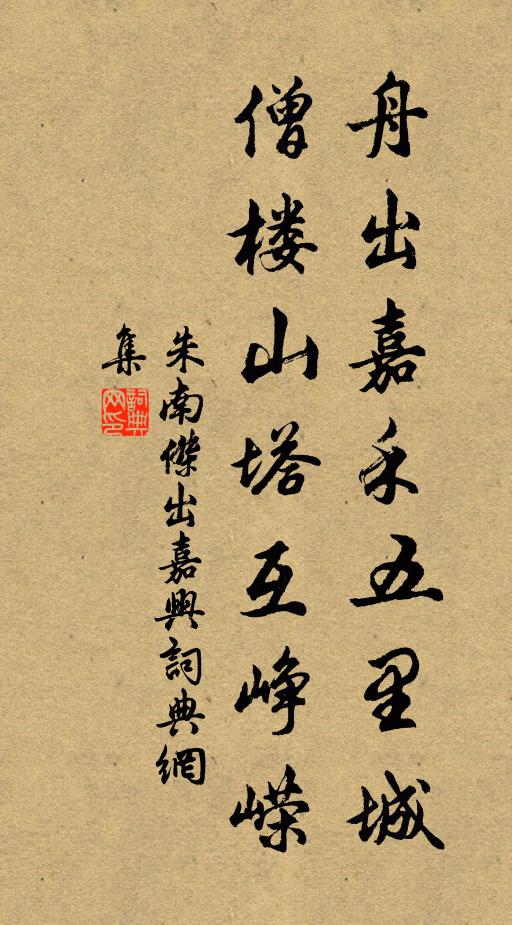 舟出嘉禾五里城
僧楼山塔互峥嵘
朱南傑出嘉興詞典網
集
詞典网印